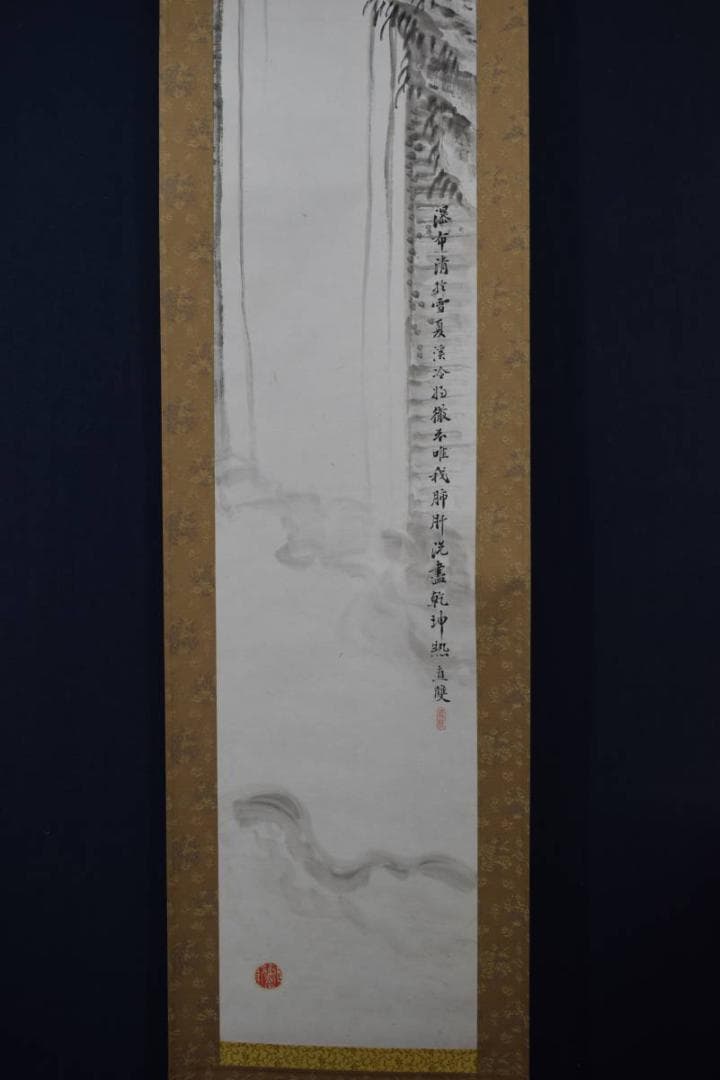 瀑布清於雪夏溪冷徹不唯我肺肝洗盡乾坤熱